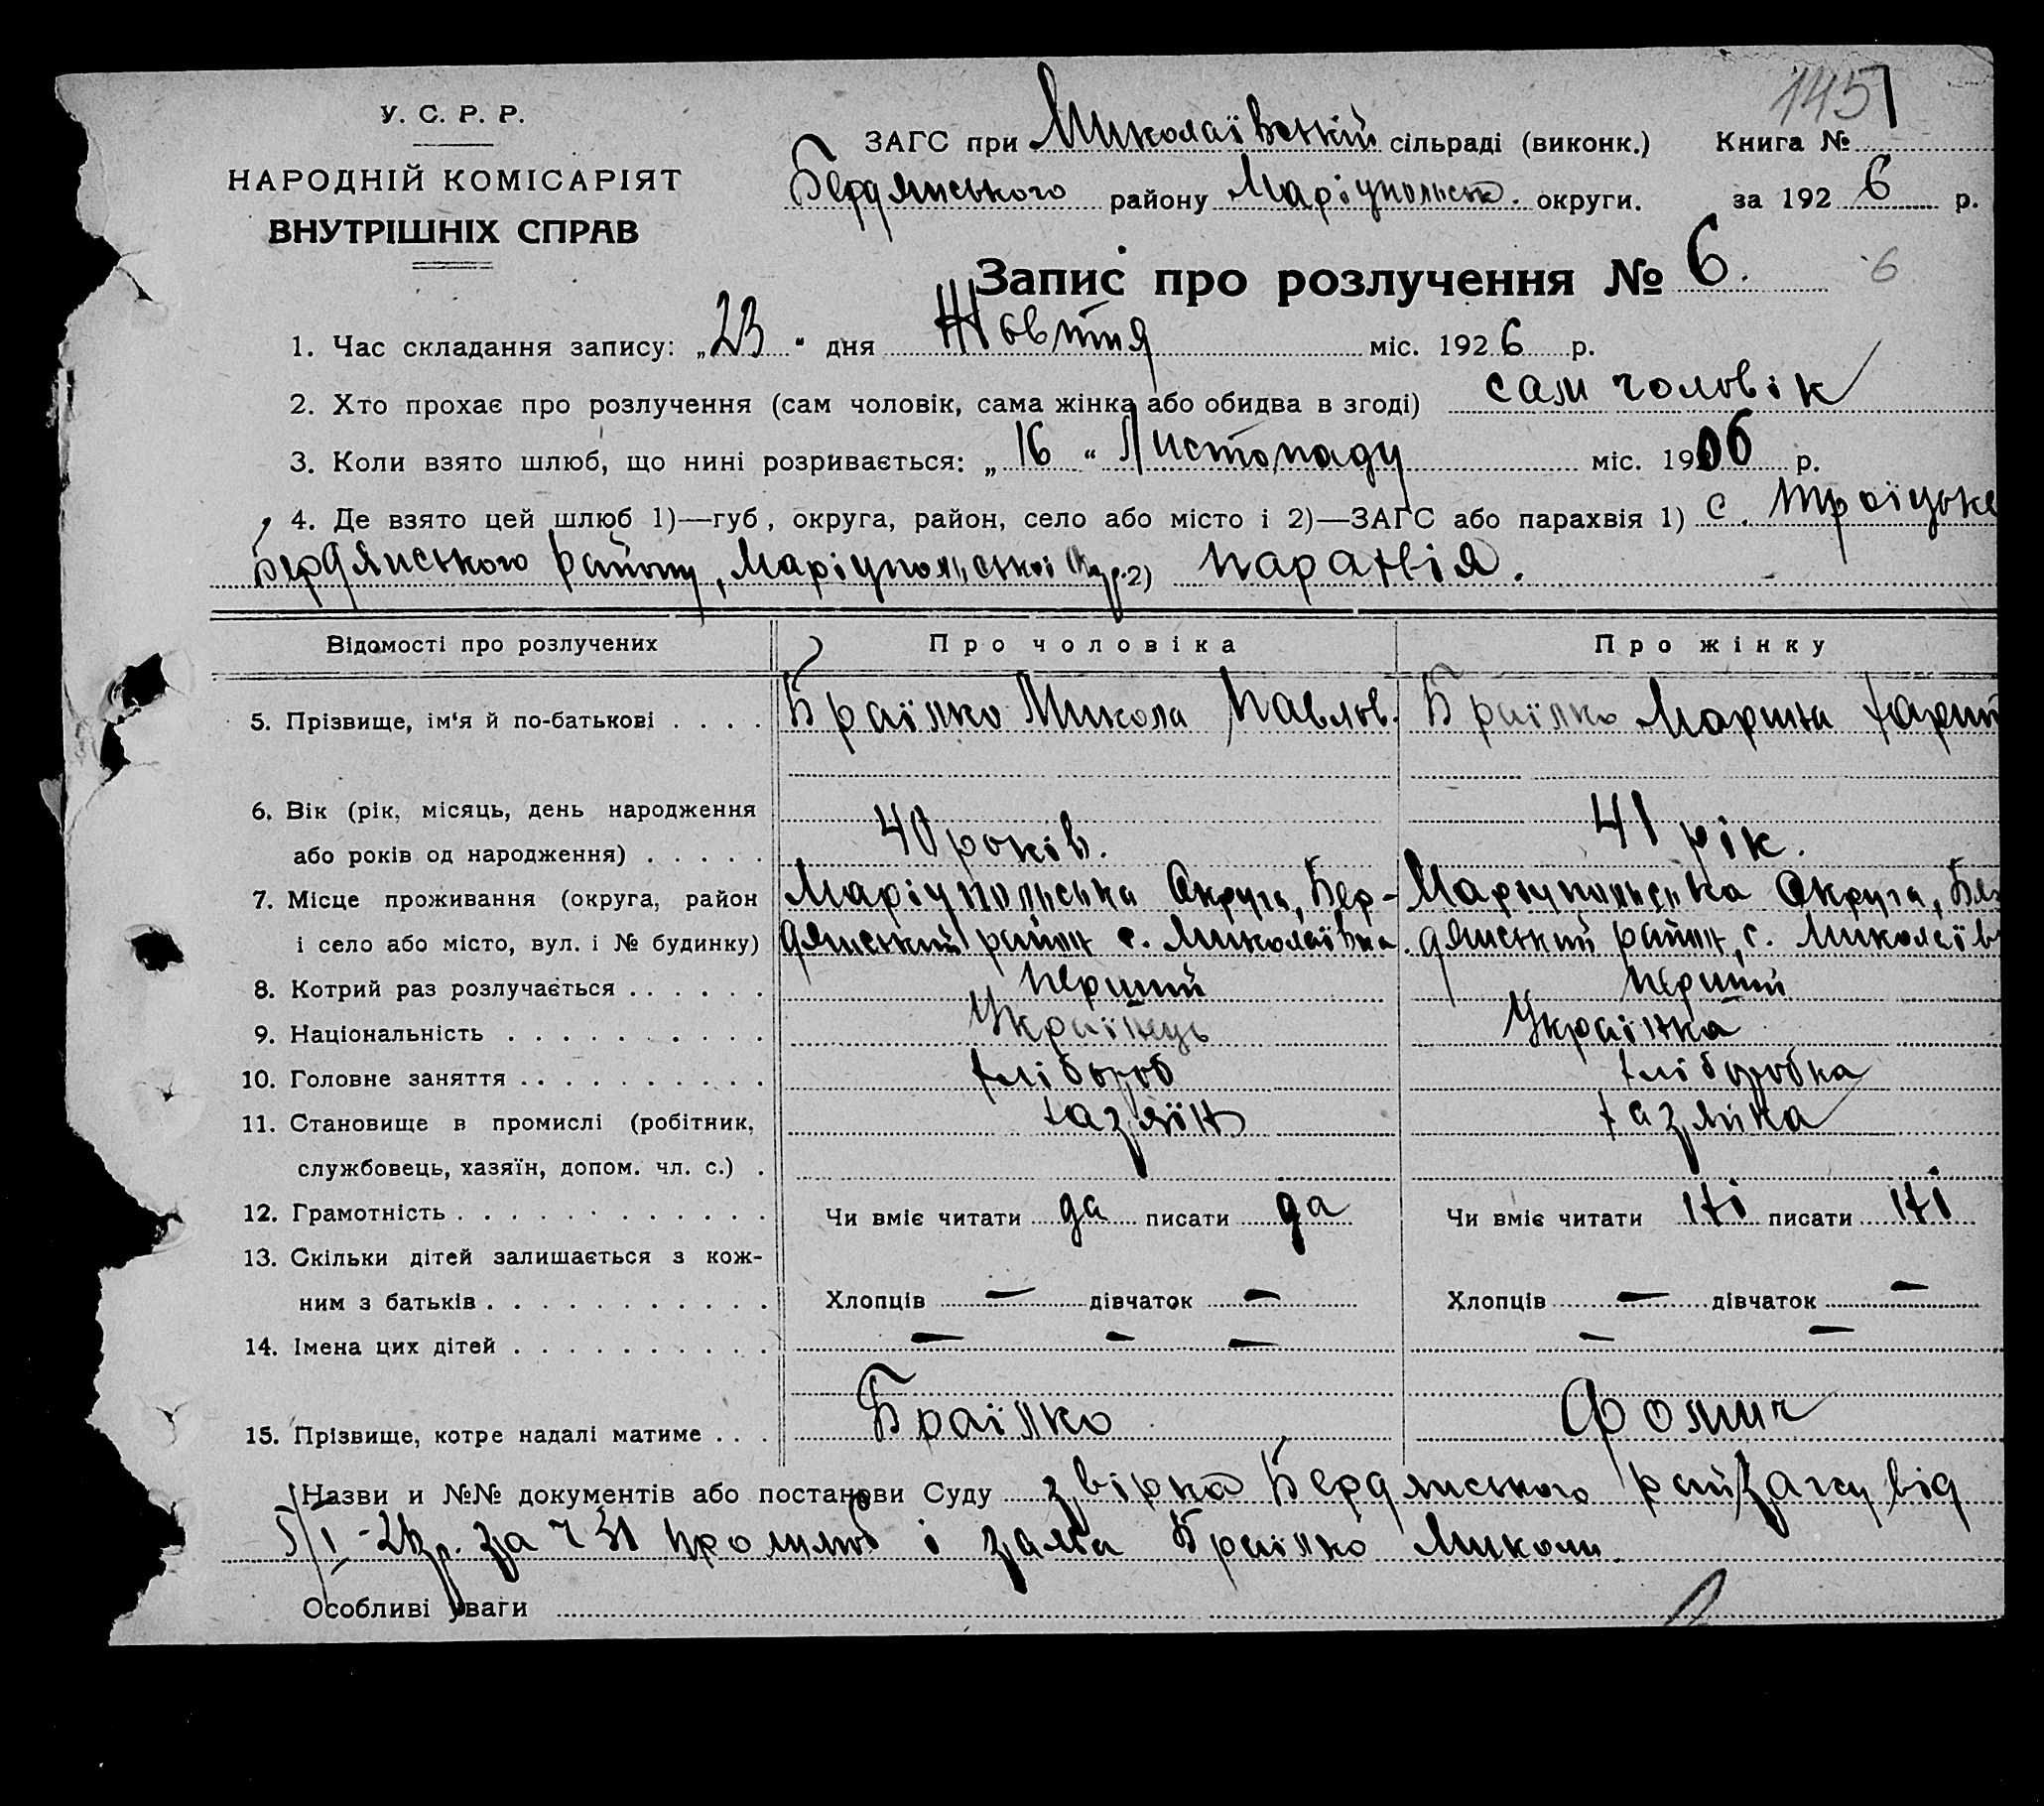 1451
У. С. Р. Р.
НАРОДНІЙ КОМІСАРІЯТ
ВНУТРІШНІХ СПРАВ
ЗАГС при Миколаївській сільраді (виконк.) Книга №
Бердянського району Маріупольськ. округи. за 1926 р.
Запис про розлучення № 6. 6
1. Час складання запису: „23“ дня Жовтня міс. 1926 р.
2. Хто прохає про розлучення (сам чоловік, сама жінка або обидва в згоді) сам чоловік
3. Коли взято шлюб, що нині розривається: „16“ Листопаду міс. 1906 р.
4. Де взято цей шлюб 1)—губ, округа, район, село або місто і 2)—ЗАГС або парахвія 1) с. Троїцьке
Бердянського району, Маріупольської 2) парахвія.
Відомості про розлучених Про чоловіка Про жінку
5. Прізвище, ім‘я й по-батькові . . . . Браїлко Микола Павлов. Браїлко Марина Харит
6. Вік (рік, місяць, день народження
або років од народження) . . . . . 40 років. 41 рік.
7. Місце проживання (округа, район Маріупольська Округа, Бер- Маріупольська Округа, Бер
і село або місто, вул. і № будинку) дянський район с. Миколаївка. дянський район, с. Миколаїв
8. Котрий раз розлучається . . . . . . перший перший
9. Національність . . . . . . . . . . Українець Українка
10. Головне заняття . . . . . . . . . . хлібороб хліборобка
11. Становище в промислі (робітник, хазяїн хазяйка
службовець, хазяїн, допом. чл. с.) .
12. Грамотність . . . . . . . . . . . . Чи вміє читати да писати да Чи вміє читати ні писати ні
13. Скільки дітей залишається з кож-
ним з батьків . . . . . . . . . . . Хлопців — дівчаток — Хлопців — дівчаток —
14. Імена цих дітей . . . . . . . . . . — — — — —
15. Прізвище, котре надалі матиме . . . Браїлко Фомич
Назви и №№ документів або постанови Суду звірка Бердянського райзагсу від
5/I-26р. за ч 31 про шлюб і заява Браїлко Миколи.
Особливі уваги